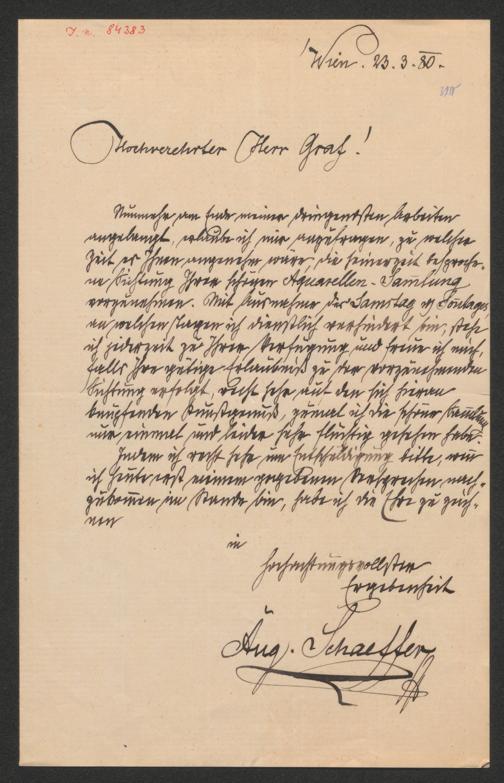 J. n. 84383
Wien. 23.3.80.
Hochverehrter Herr Graf!
Nunmehr am Ende meiner dringendsten Arbeiten
angelangt, erlaube ich mir anzufragen, zu welcher
Zeit es Ihnen angenehm wäre, die seinerzeit besproche-
ne Sichtung Ihrer schönen Aquarellen-Sammlung
vorzunehmen. Mit Ausnahme des Samstag u Sontages
an welchen Tagen ich dienstlich verhindert bin, stehe
ich jederzeit zu Ihrer Verfügung und freue ich mich,
falls Ihre gütige Erlaubniß zu der vorzunehmenden
Sichtung erfolgt, recht sehr auf den sich hieran
knüpfenden Kunstgenuß, zumal ich die schöne Sammlung
nur einmal und leider sehr flüchtig gesehen habe.
Indem ich recht sehr um Entschuldigung bitte, wenn
ich heute erst meinem gegebenen Versprechen nach-
zukommen im Stande bin, habe ich die Ehre zu zeich-
nen
in
hochachtungsvollster
Ergebenheit
Aug. Schaeffer